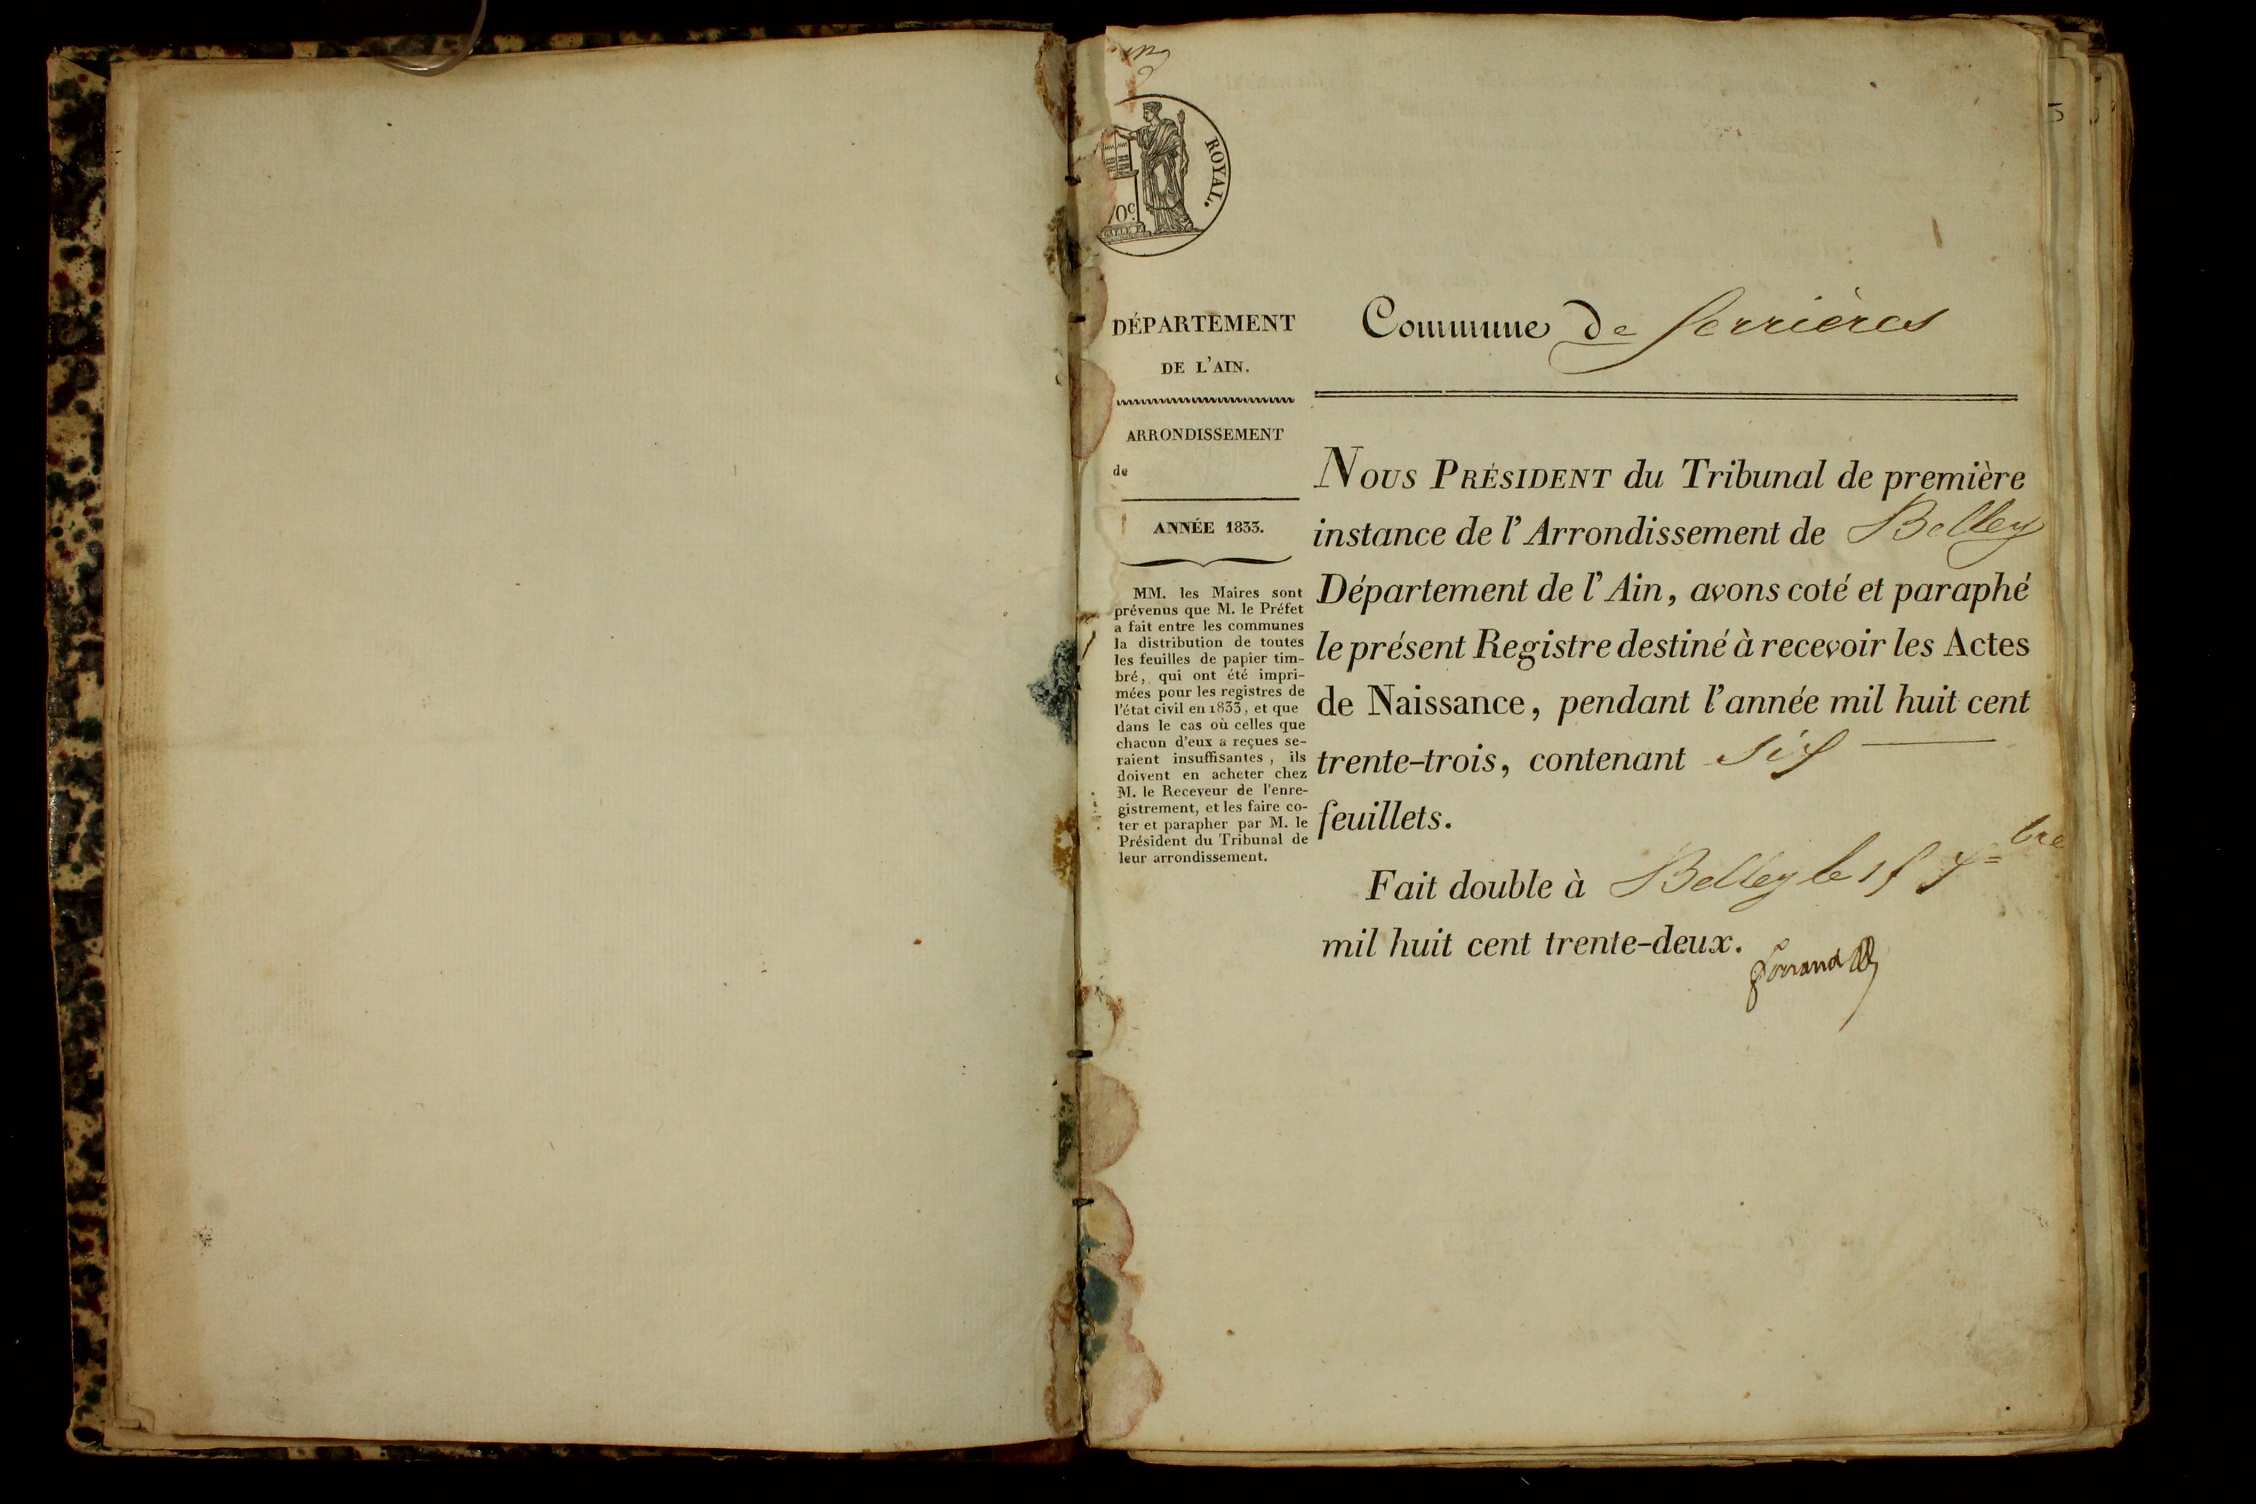 ROYAL.
DÉPARTEMENT
DE L'AIN.
ARRONDISSEMENT
de
ANNÉE 1833.
MM. les Maires sont
prévenus que M. le Préfet
a fait entre les communes
la distribution de toutes
les feuilles de papier tim-
bré, qui ont été impri-
mées pour les registres de
l'état civil en 1833, et que
dans le cas où celles que
chacun d'eux a reçues se-
raient insuffisantes, ils
doivent en acheter chez
M. le Receveur de l'enre-
gistrement, et les faire co-
ter et parapher par M. le
Président du Tribunal de
leur arrondissement.
Commune de Serrières
NOUS PRÉSIDENT du Tribunal de première
instance de l'Arrondissement de Belley
Département de l'Ain, avons coté et paraphé
le présent Registre destiné à recevoir les Actes
de Naissance, pendant l'année mil huit cent
trente-trois, contenant six
feuillets.
Fait double à Belley le
mil huit cent trente-deux.